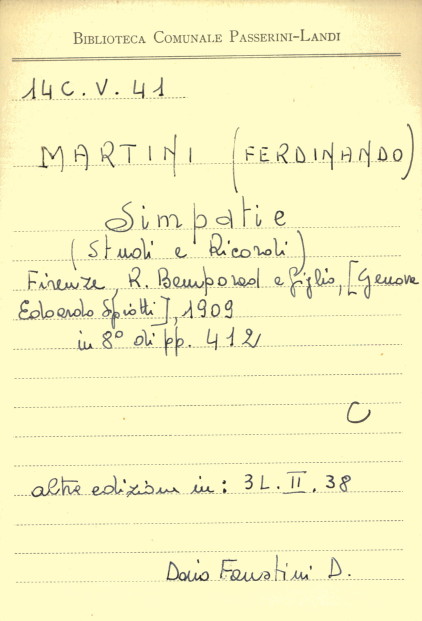 BIBLIOTECA COMUNALE PASSERINI-LANDI
14 C. V. 41
MARTINI (FERDINANDO)
Simpatie
(Studi e Ricordi)
Firenze, R. Bemporad e figlio, [Genova
Edoardo Spiotti], 1909
in 8° di pp. 412
C
altre edizioni in: 3 L. II. 38
Dario Faustini D.